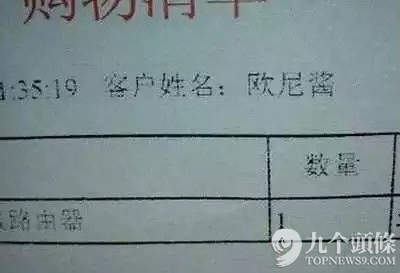 购物清单
1:35:19 客户姓名：欧尼酱
数量
路由器 1
九个頭條
TOPNEWS9.COM